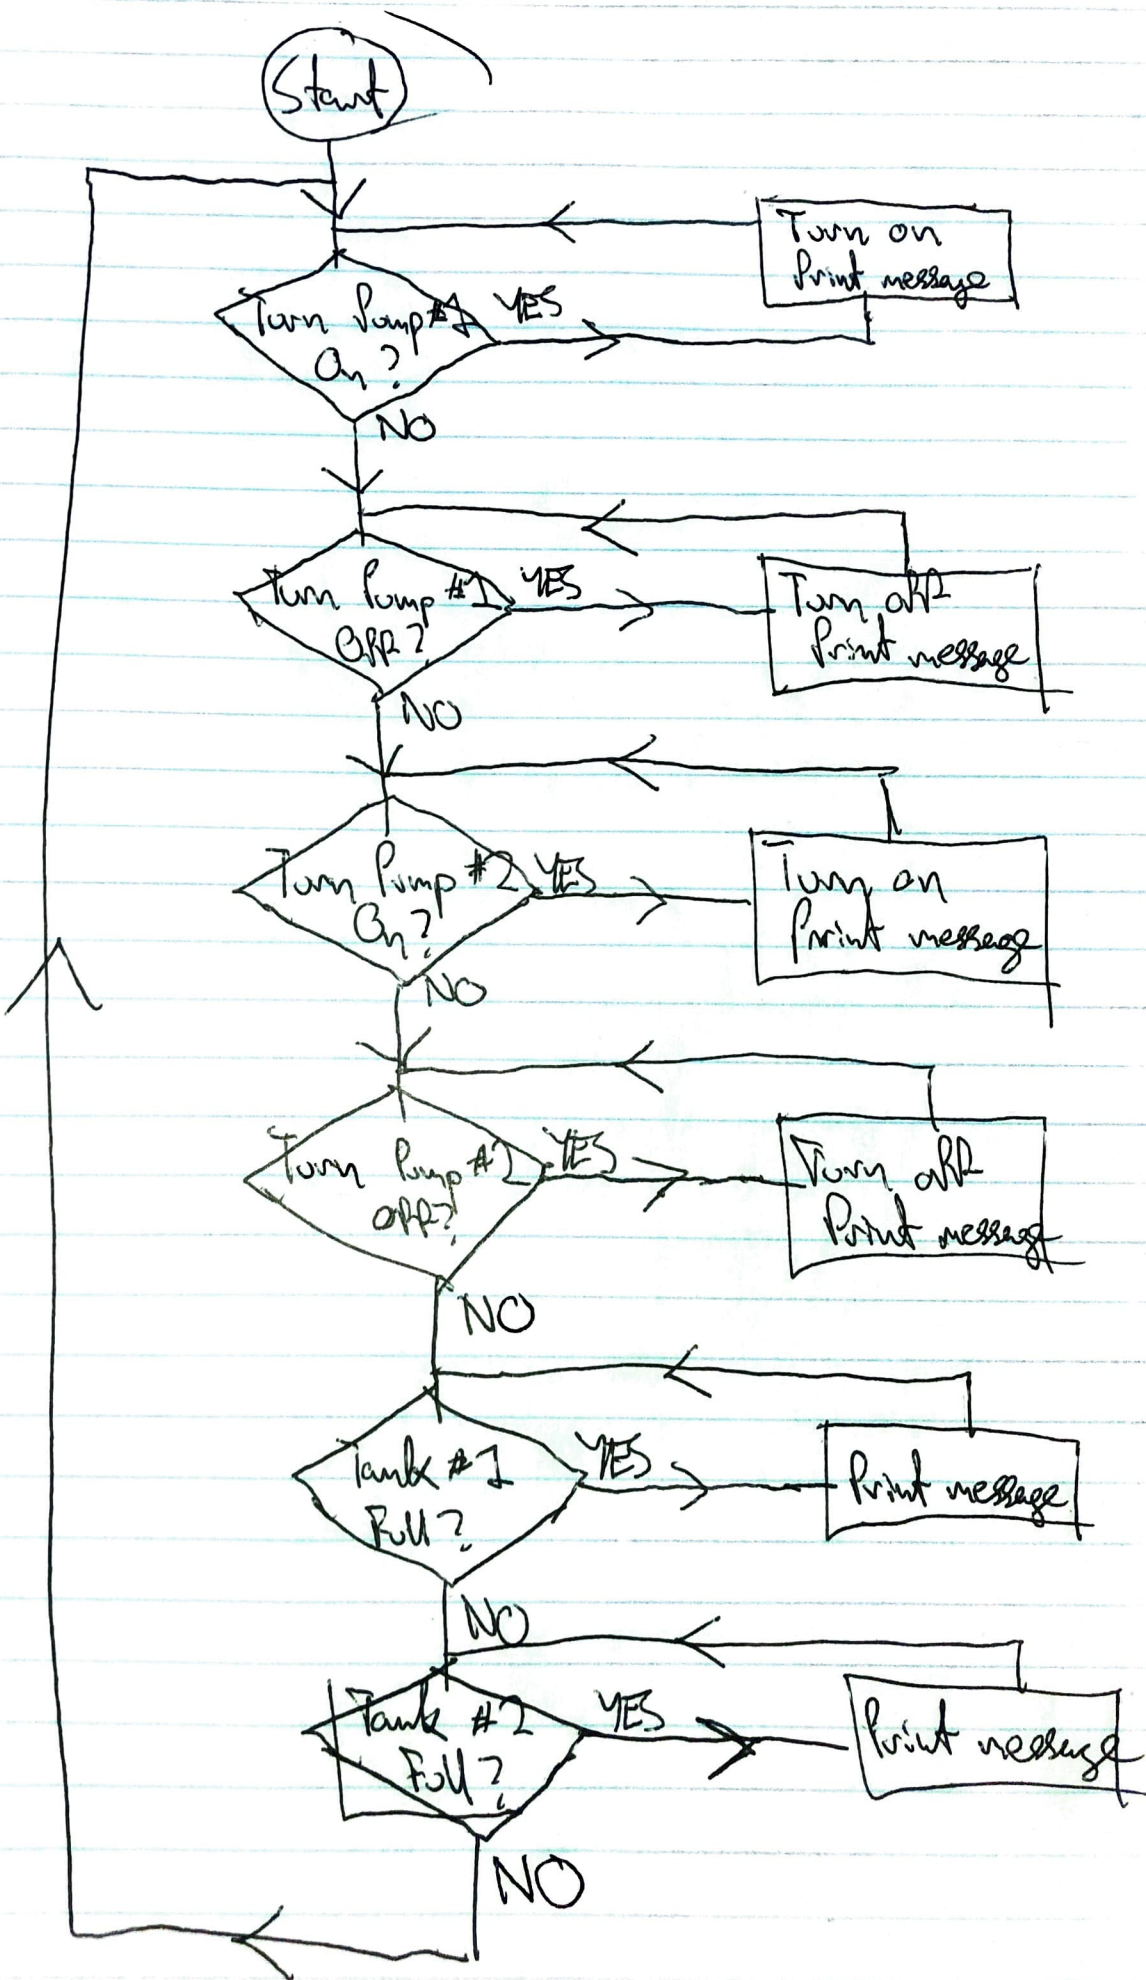 Start
Turn on
Print message
Turn Pump #1
On?
YES
NO
Turn Pump #1
Off?
YES
Turn off
Print message
NO
Turn Pump #2
On?
YES
Turn on
Print message
NO
Turn Pump #2
off?
YES
Turn off
Print message
NO
Tank #1
Full?
YES
Print message
NO
Tank #2
Full?
YES
Print message
NO